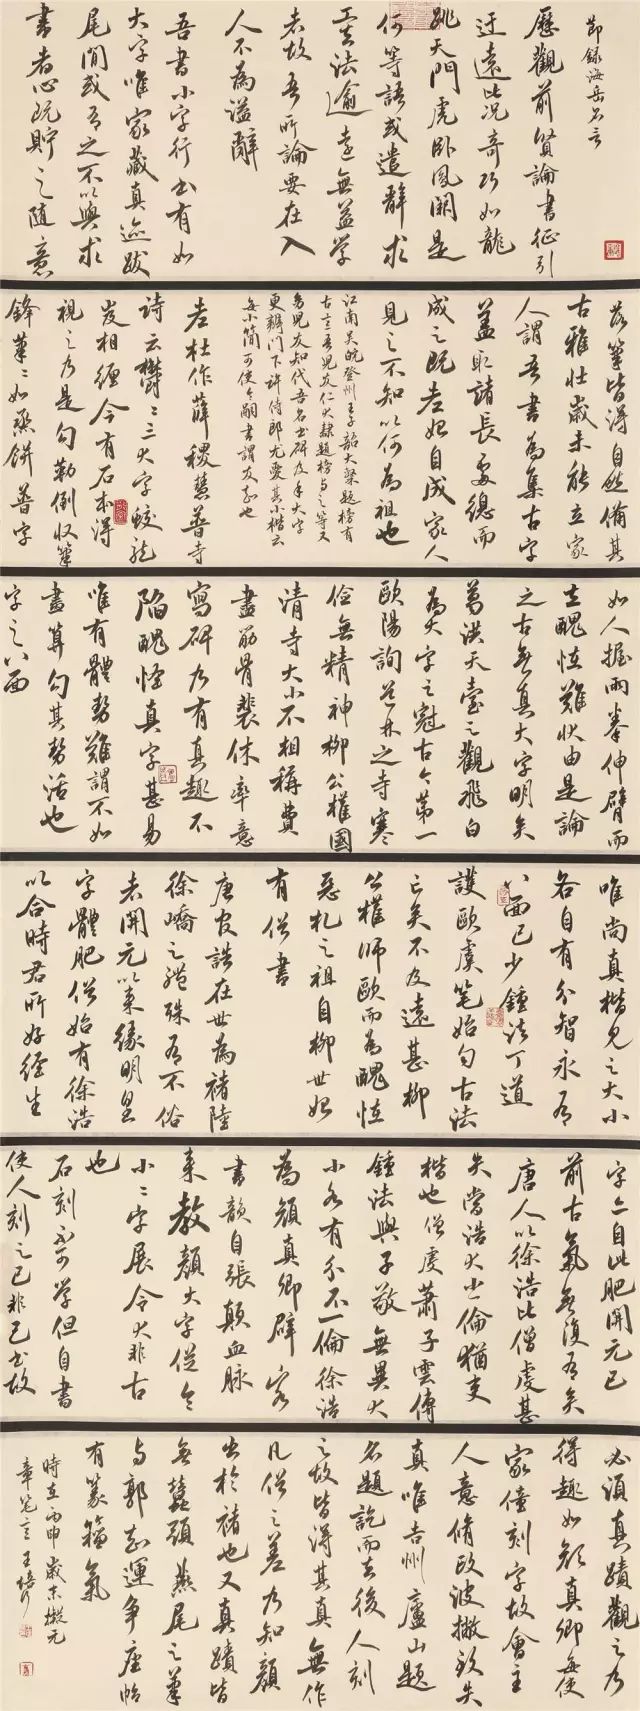 節錄海岳名言
歷觀前賢論書征引
迂遠比况奇巧如龍
跳天門虎卧鳳闕是
何等語或遣辭求
工去法逾遠無益學
者故吾所論要在入
人不為溢辭
吾書小字行書有如
大字唯家藏真迹跋
尾間或有之不以與求
書者心既貯之隨意
落筆皆得自然備其
古雅壯歲未能立家
人謂吾書為集古字
蓋取諸長處總而
成之既老始自成家人
見之不知以何為祖也
江南吴皖登州王子韶大隸題榜有
古意吾兒友仁大隸題榜與之等又
幼兒友知代吾名書碑及手大字
更辨門下許侍郎尤愛其小楷云
每小簡可使令嗣書謂友知也
老杜作薛稷慧普寺
詩云鬱〻三大字蛟龍
岌相纏今有石本得
視之乃是勾勒倒收筆
鋒筆〻如蒸餅普字
如人握兩拳伸臂而
立醜怪難狀由是論
之古無真大字明矣
葛洪天臺之觀飛白
為大字之冠古今第一
歐陽詢道林之寺寒
儉無精神柳公權國
清寺大小不相稱費
盡筋骨裴休率意
寫碑乃有真趣不
陷醜怪真字甚易
唯有體勢難謂不如
畫算勻其勢活也
字之八面
唯尚真楷見之大小
各自有分智永有
八面已少鍾法丁道
護歐虞筆始勻古法
亡矣不及遠甚柳
公權師歐而為醜怪
惡札之祖自柳世始
有俗書
唐官誥在世為褚陸
徐嶠之體殊有不俗
者開元以來緣明皇
字體肥俗始有徐浩
以合時君所好經生
字亦自此肥開元已
前古氣無復有矣
唐人以徐浩比僧虔甚
失當浩大小一倫猶吏
楷也僧虔蕭子雲傳
鍾法與子敬無異大
小各有分不一倫徐浩
為顏真卿辟客
書韻自張顛血脉
來教顏大字促令
小小字展令大非古
也
石刻不可學但自書
使人刻之已非己書故
必須真蹟觀之乃
得趣如顏真卿每使
家僮刻字故會主
人意修改波撇致失
真唯吉州廬山題
名題訖而去後人刻
之故皆得其真無作
凡俗之差乃知顏
出於褚也又真蹟皆
無蠶頭燕尾之筆
與郭知運爭座帖
有篆籀氣
時在丙申歲末擬元
章筆意